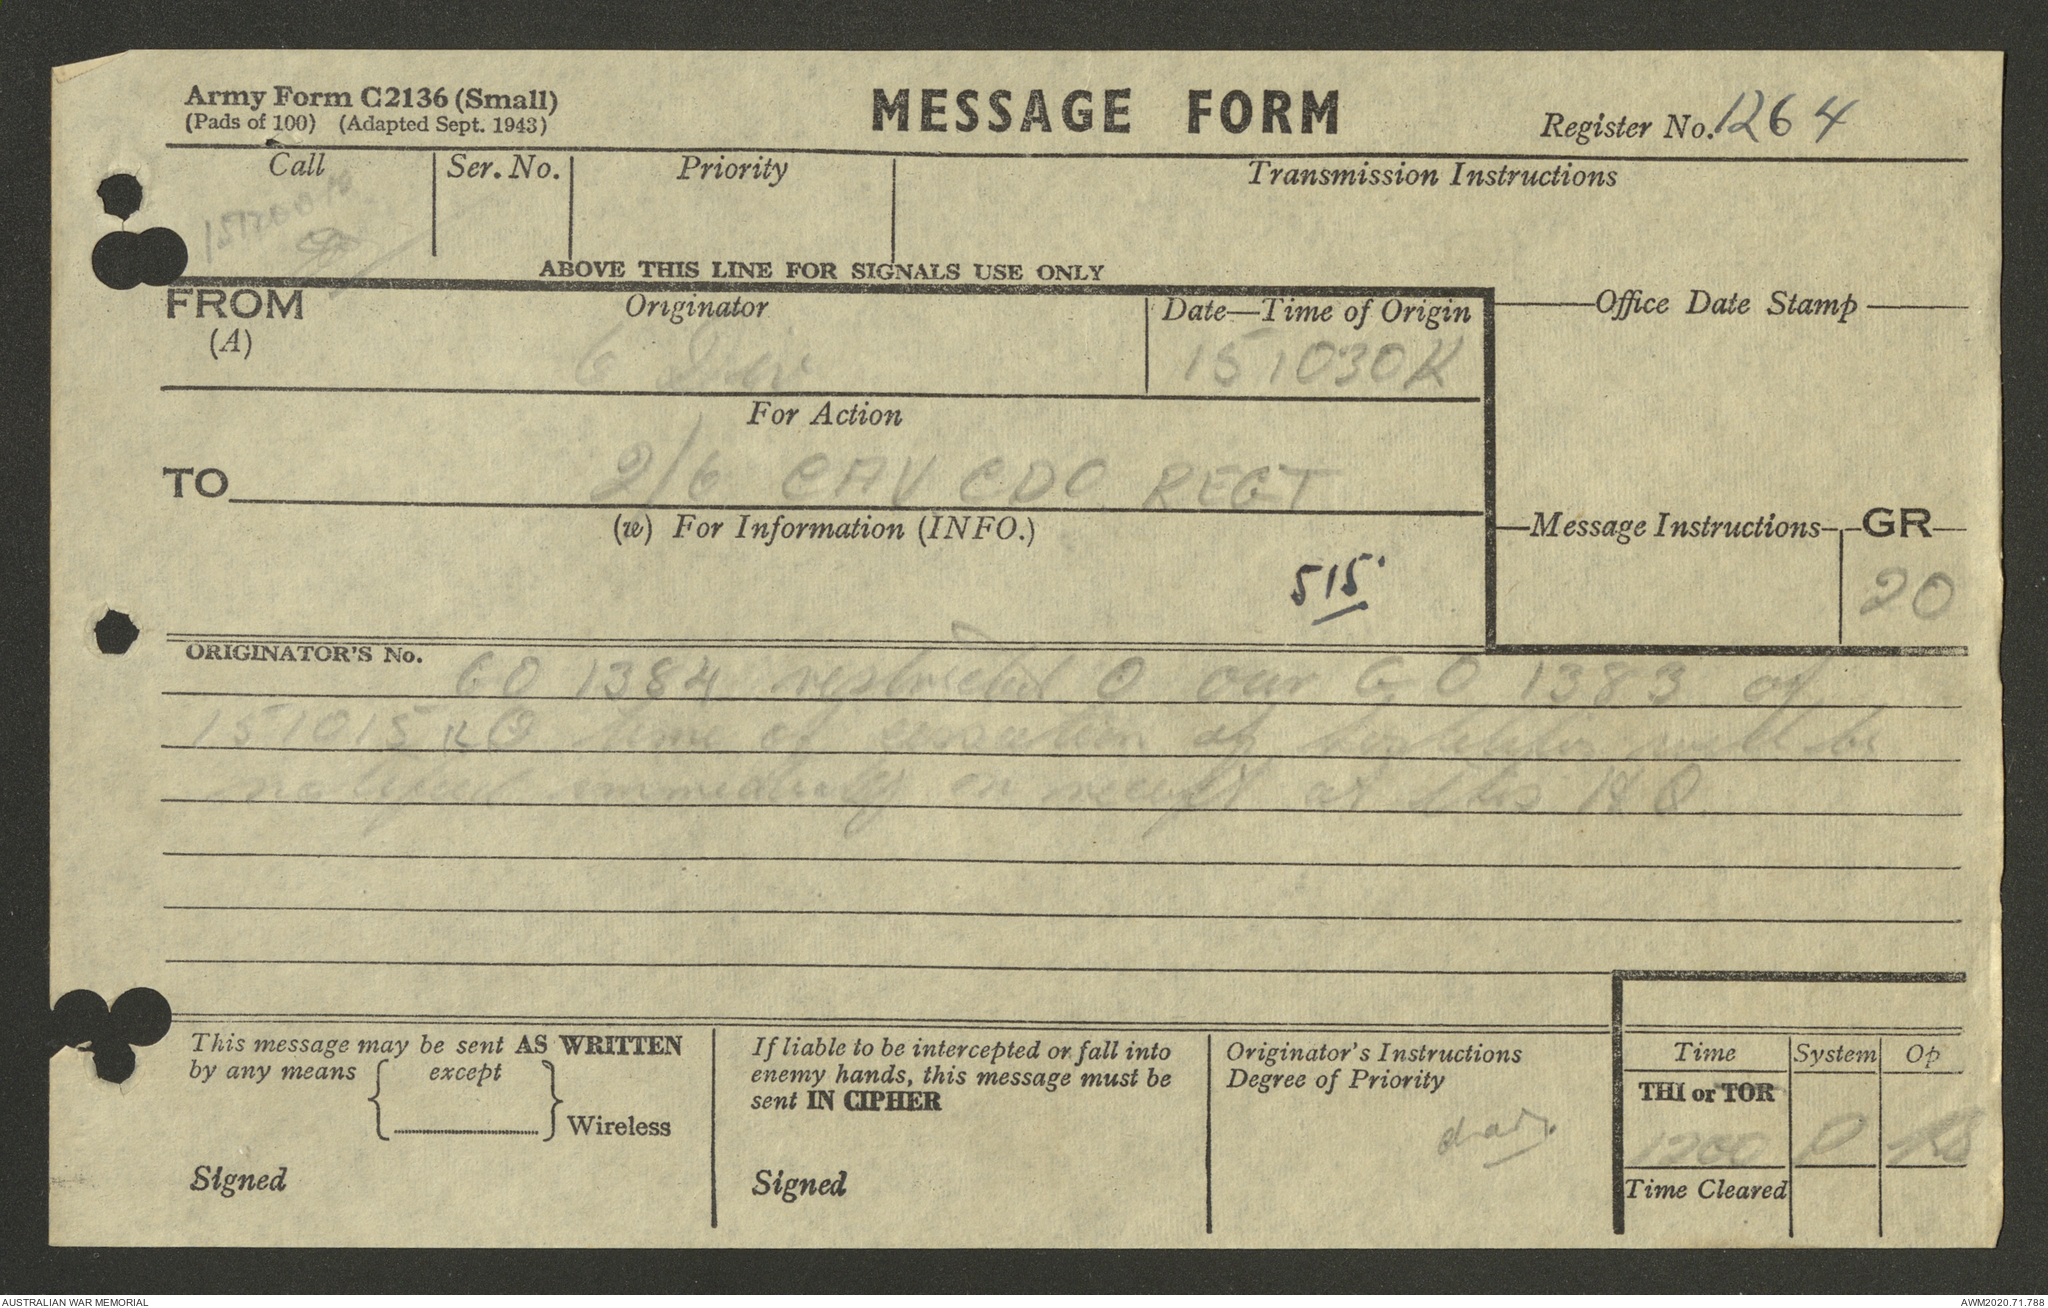 Army Form C2136 (Small)
(Pads of 100) (Adapted Sept. 1943)
MESSAGE FORM
Register No. 1264
Call
Ser. No.
Priority
Transmission Instructions
ABOVE THIS LINE FOR SIGNALS USE ONLY
FROM
(A)
Originator
6 Div
Date—Time of Origin
151030K
Office Date Stamp
For Action
TO
2/6 CAV CDO REGT
(w) For Information (INFO.)
515
Message Instructions
GR
20
ORIGINATOR'S No.
GO 1384 restricted O our GO 1383 of
151015K O time of cessation of hostilities will be
notified immediately on receipt at this HQ
This message may be sent AS WRITTEN
by any means except
Wireless
Signed
If liable to be intercepted or fall into
enemy hands, this message must be
sent IN CIPHER
Signed
Originator's Instructions
Degree of Priority
Time
System
Op
THI or TOR
1200
Time Cleared
AUSTRALIAN WAR MEMORIAL
AWM2020.71.788